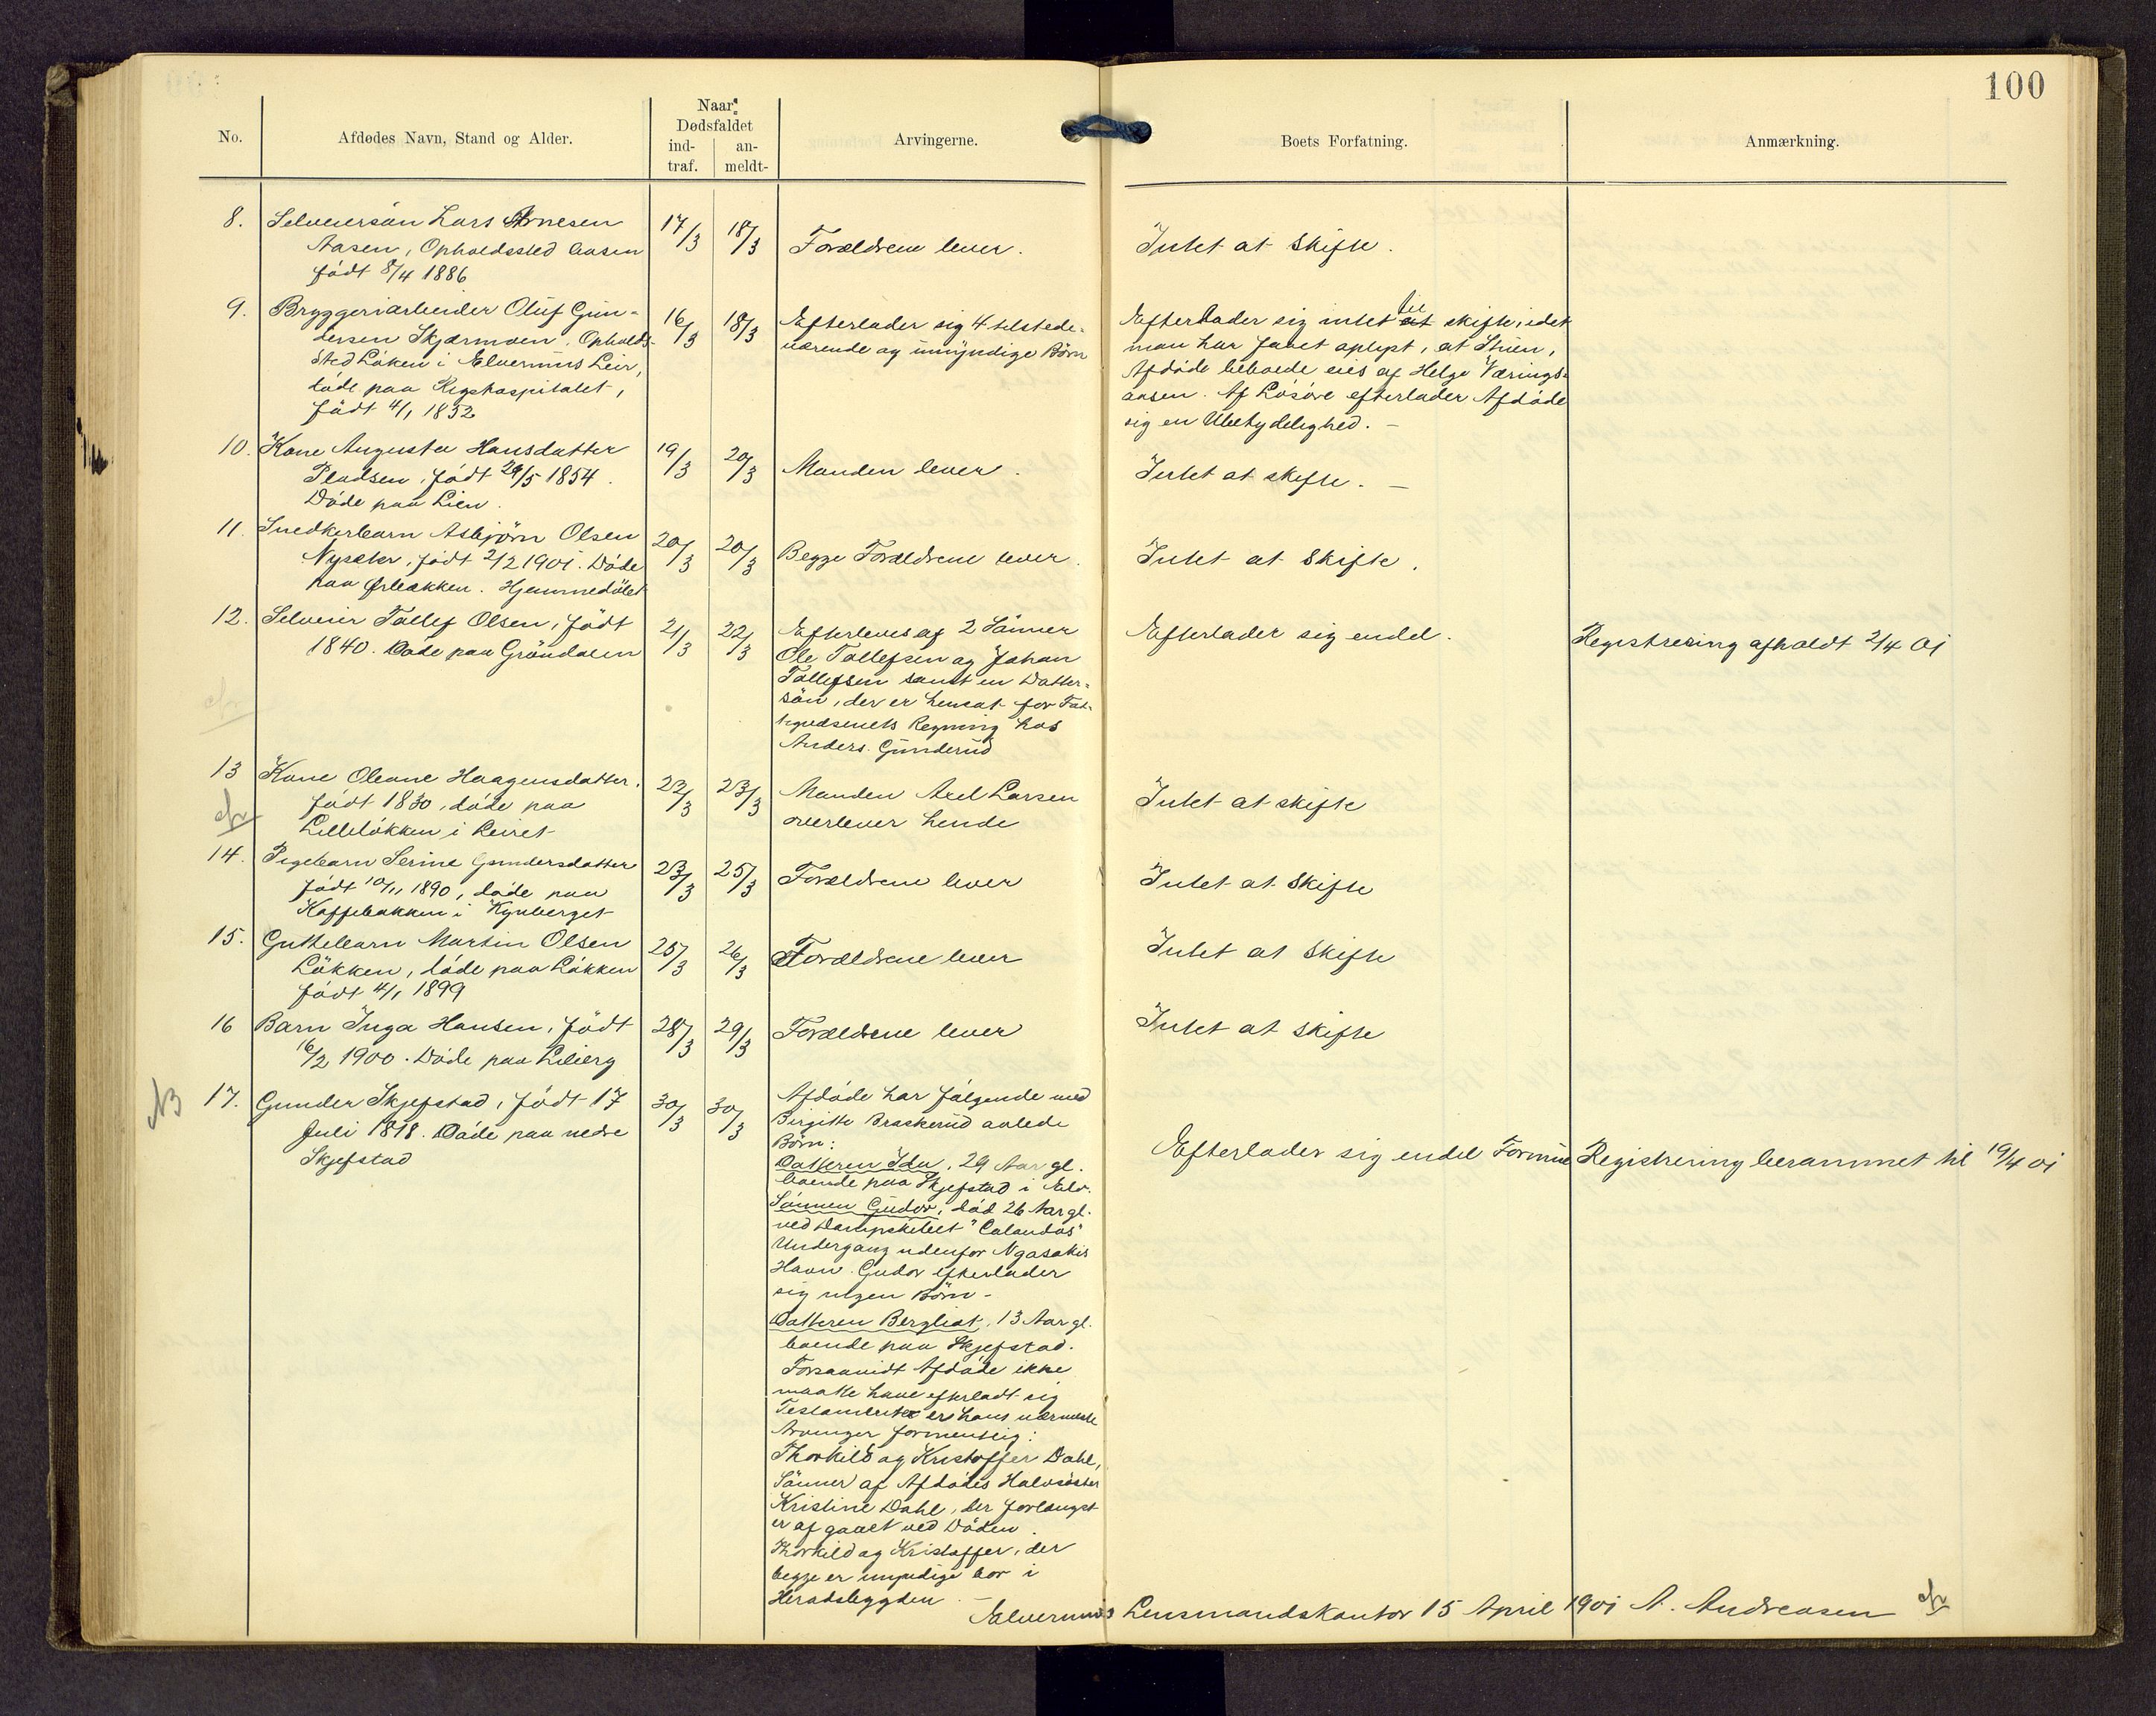 100
No.
Afdødes Navn, Stand og Alder.
Naar
Dødsfaldet
ind-
traf.
an-
meldt-
Arvingerne.
Boets Forfatning.
Anmærkning.
8.
Selveiersön Lars Arnesen
Aasen, Opholdssted Aasen
født 8/4 1886
17/3
18/3
Forældrene lever.
Intet at skifte.
9.
Bryggeriarbeider Oluf Gun-
dersen Skjærmoen. Opholds-
sted Løken i Elverums Leir,
døde paa Rigshospitalet,
født 4/1 1852
16/3
18/3
Efterlader sig 4 tilstede-
værende og umyndige Børn
Efterlader sig intet til
at skifte, idet
man har faaet oplyst, at Stuen,
Afdøde beboede eies af Helge Værings-
aasen. Af Løsøre efterlader Afdøde
sig en Ubetydelighed. -
10.
Kone Augusta Hansdatter
Pladsen, født 29/5 1854.
Døde paa Lien.
19/3
20/3
Manden lever.
Intet at skifte. -
11.
Snedkerbarn Asbjörn Olsen
Nysæter, født 2/2 1901. Døde
paa Ørbakken. Hjemmedöbt
20/3
20/3
Begge Forældrene lever.
Intet at skifte.
12.
Selveier Tollef Olsen, født
1840. Døde paa Gröndalen
21/3
22/3
Efterleves af 2 Sønner
Ole Tollefsen og Johan
Tollefsen samt en Datter-
søn, der er hensat for Fat-
tigvæsenets Regning hos
Anders Gunderud
Efterlader sig endel.
Registrering afholdt 2/4 01
13
Kone Oleane Haagensdatter.
født 1830, døde paa
Lilleløkken i Leiret
22/3
23/3
Manden Axel Larsen
overlever hende
Intet at skifte
14.
Pigebarn Serine Gundersdatter
født 10/11 1890, døde paa
Kaffebakken i Kynberget
23/3
25/3
Forældrene lever
Intet at skifte
15.
Guttebarn Martin Olsen
Løkken, døde paa Løkken
født 4/1 1899
25/3
26/3
Forældrene lever
Intet at skifte
16
Barn Inga Hansen, født
16/2 1900. Døde paa Lilierg
28/3
29/3
Forældrene lever
Intet at skifte
NB
17.
Gunder Skjefstad, født 17
Juli 1818. Døde paa nedre
Skjefstad
30/3
30/3
Afdøde har følgende med
Birgitte Braskerud avlede
Børn:
Datteren Ida, 29 Aar gl.
boende paa Skjefstad i Elv.
Sønnen Gudor, død 26 Aar gl.
ved Dampskibet "Calandas"
Undergang udenfor Ngasakis
Havn. Gudor efterlader
sig ingen Børn -
Datteren Bergliot, 13 Aar gl.
boende paa Skjefstad.
Forsaavidt Afdøde ikke
maatte have efterladt sig
Testamente er hans nærmeste
Arvinger formentlig:
Thorkild og Kristoffer Dahl,
Sønner af Afdødes Halvsøster
Kristine Dahl, der forlængst
er afgaaet ved Døden.
Thorkild og Kristoffer, der
begge er myndige bor i
Heradsbygden. -
Efterlader sig endel Formue
Registrering berammet til 19/4 01
Elverums Lensmandskontor 15 April 1901 A. Andreasen